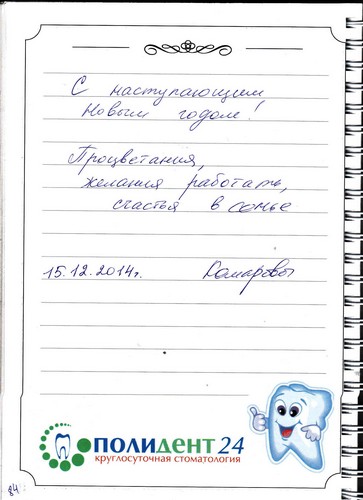 С наступающим
Новым годом!
Процветания,
желания работать,
счастья в семье
15.12.2014г. Комаровы
ПОЛИДЕНТ 24
круглосуточная стоматология
84